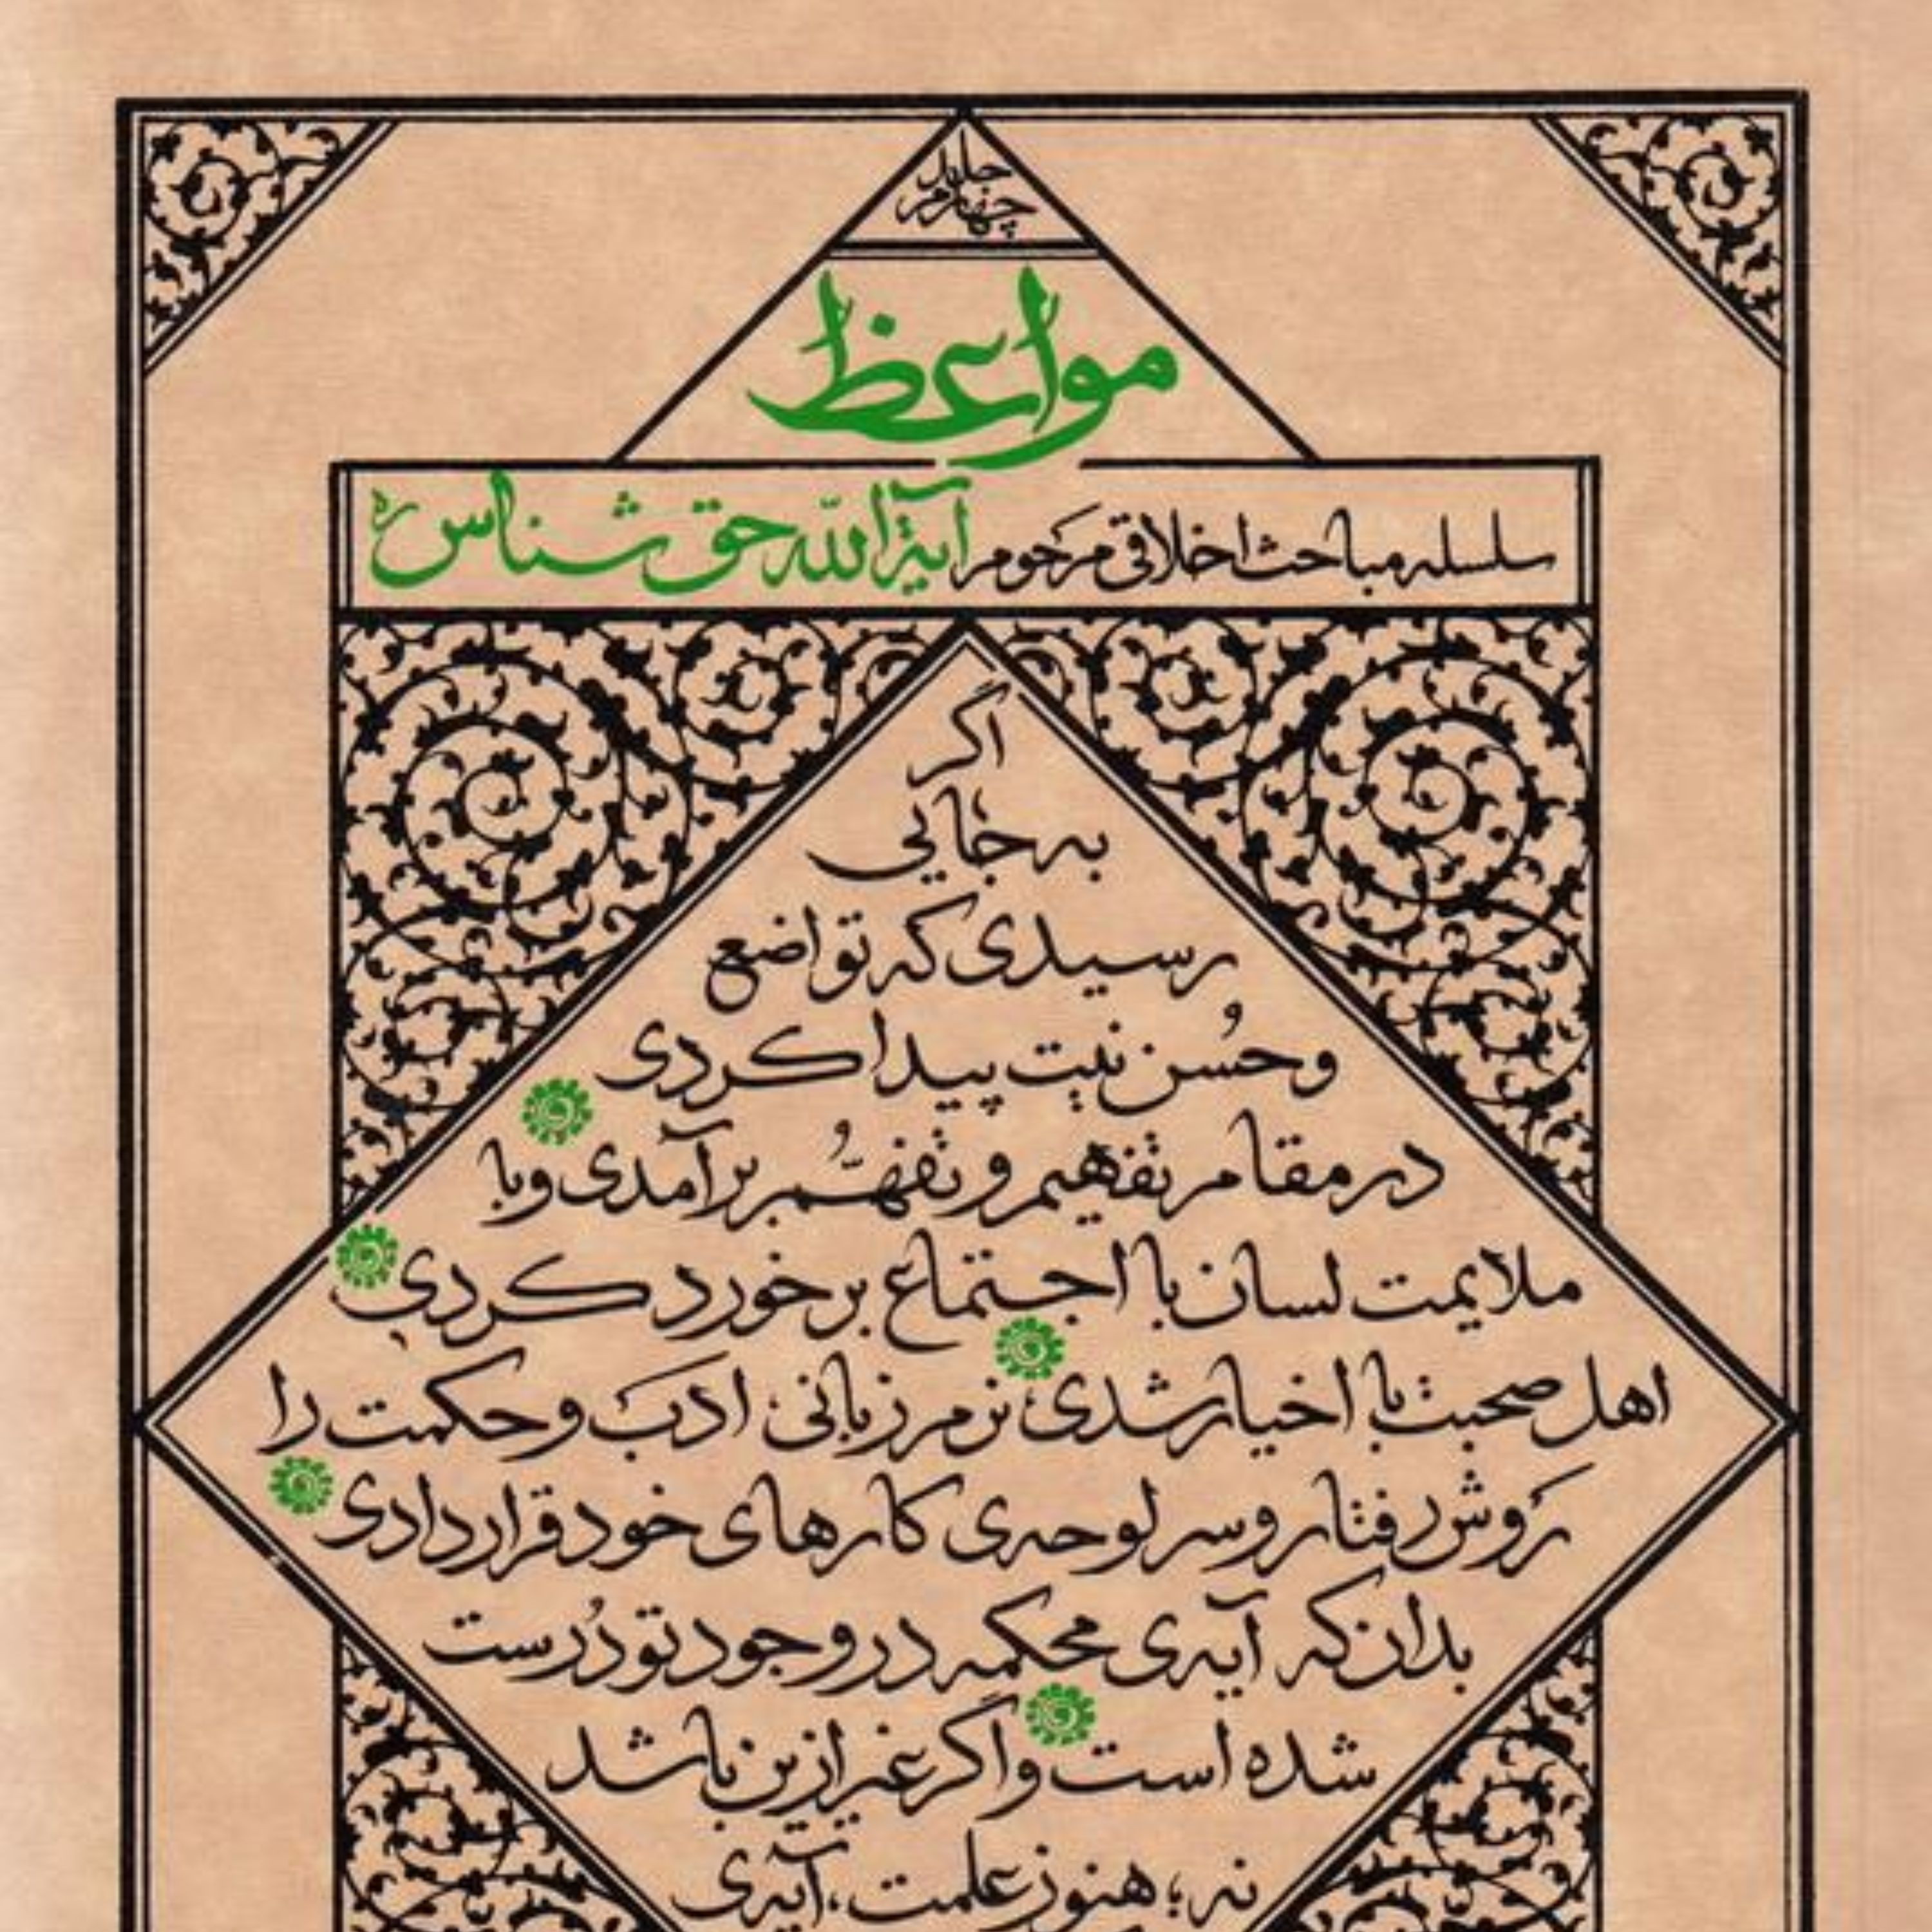 جلد
چهارم
مواعظ
سلسله مباحث اخلاقی مرحوم آیة الله حق شناس ره
اگر
به جایی
رسیدی که تواضع
و حُسن نیت پیدا کردی
در مقام تفهیم و تفهّم برآمدی و با
ملایمت لسان با اجتماع برخورد کردی
اهل صحبت با اخیار شدی، نرم زبانی، ادَب و حکمت را
رَوِش رفتار و سر لوحه‌ی کارهای خود قرار دادی
بدان که آیه‌ی محکمه در وجود تو دُرست
شده است و اگر غیر ازین باشد
نه؛ هنوز علمت، آیه‌ی